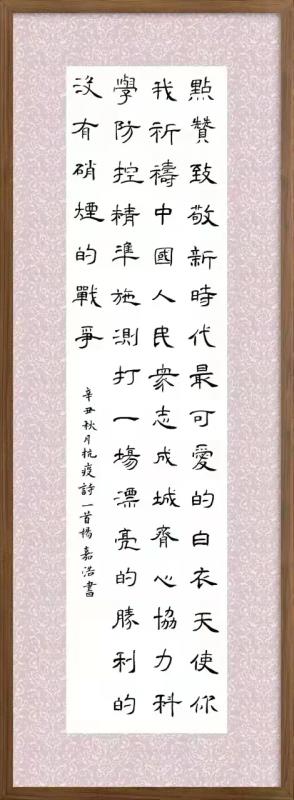 點贊致敬新時代最可愛的白衣天使你
我祈禱中國人民衆志成城齊心協力科
學防控精準施測打一場漂亮的勝利的
沒有硝煙的戰爭
辛丑秋月抗疫詩一首楊嘉浩書